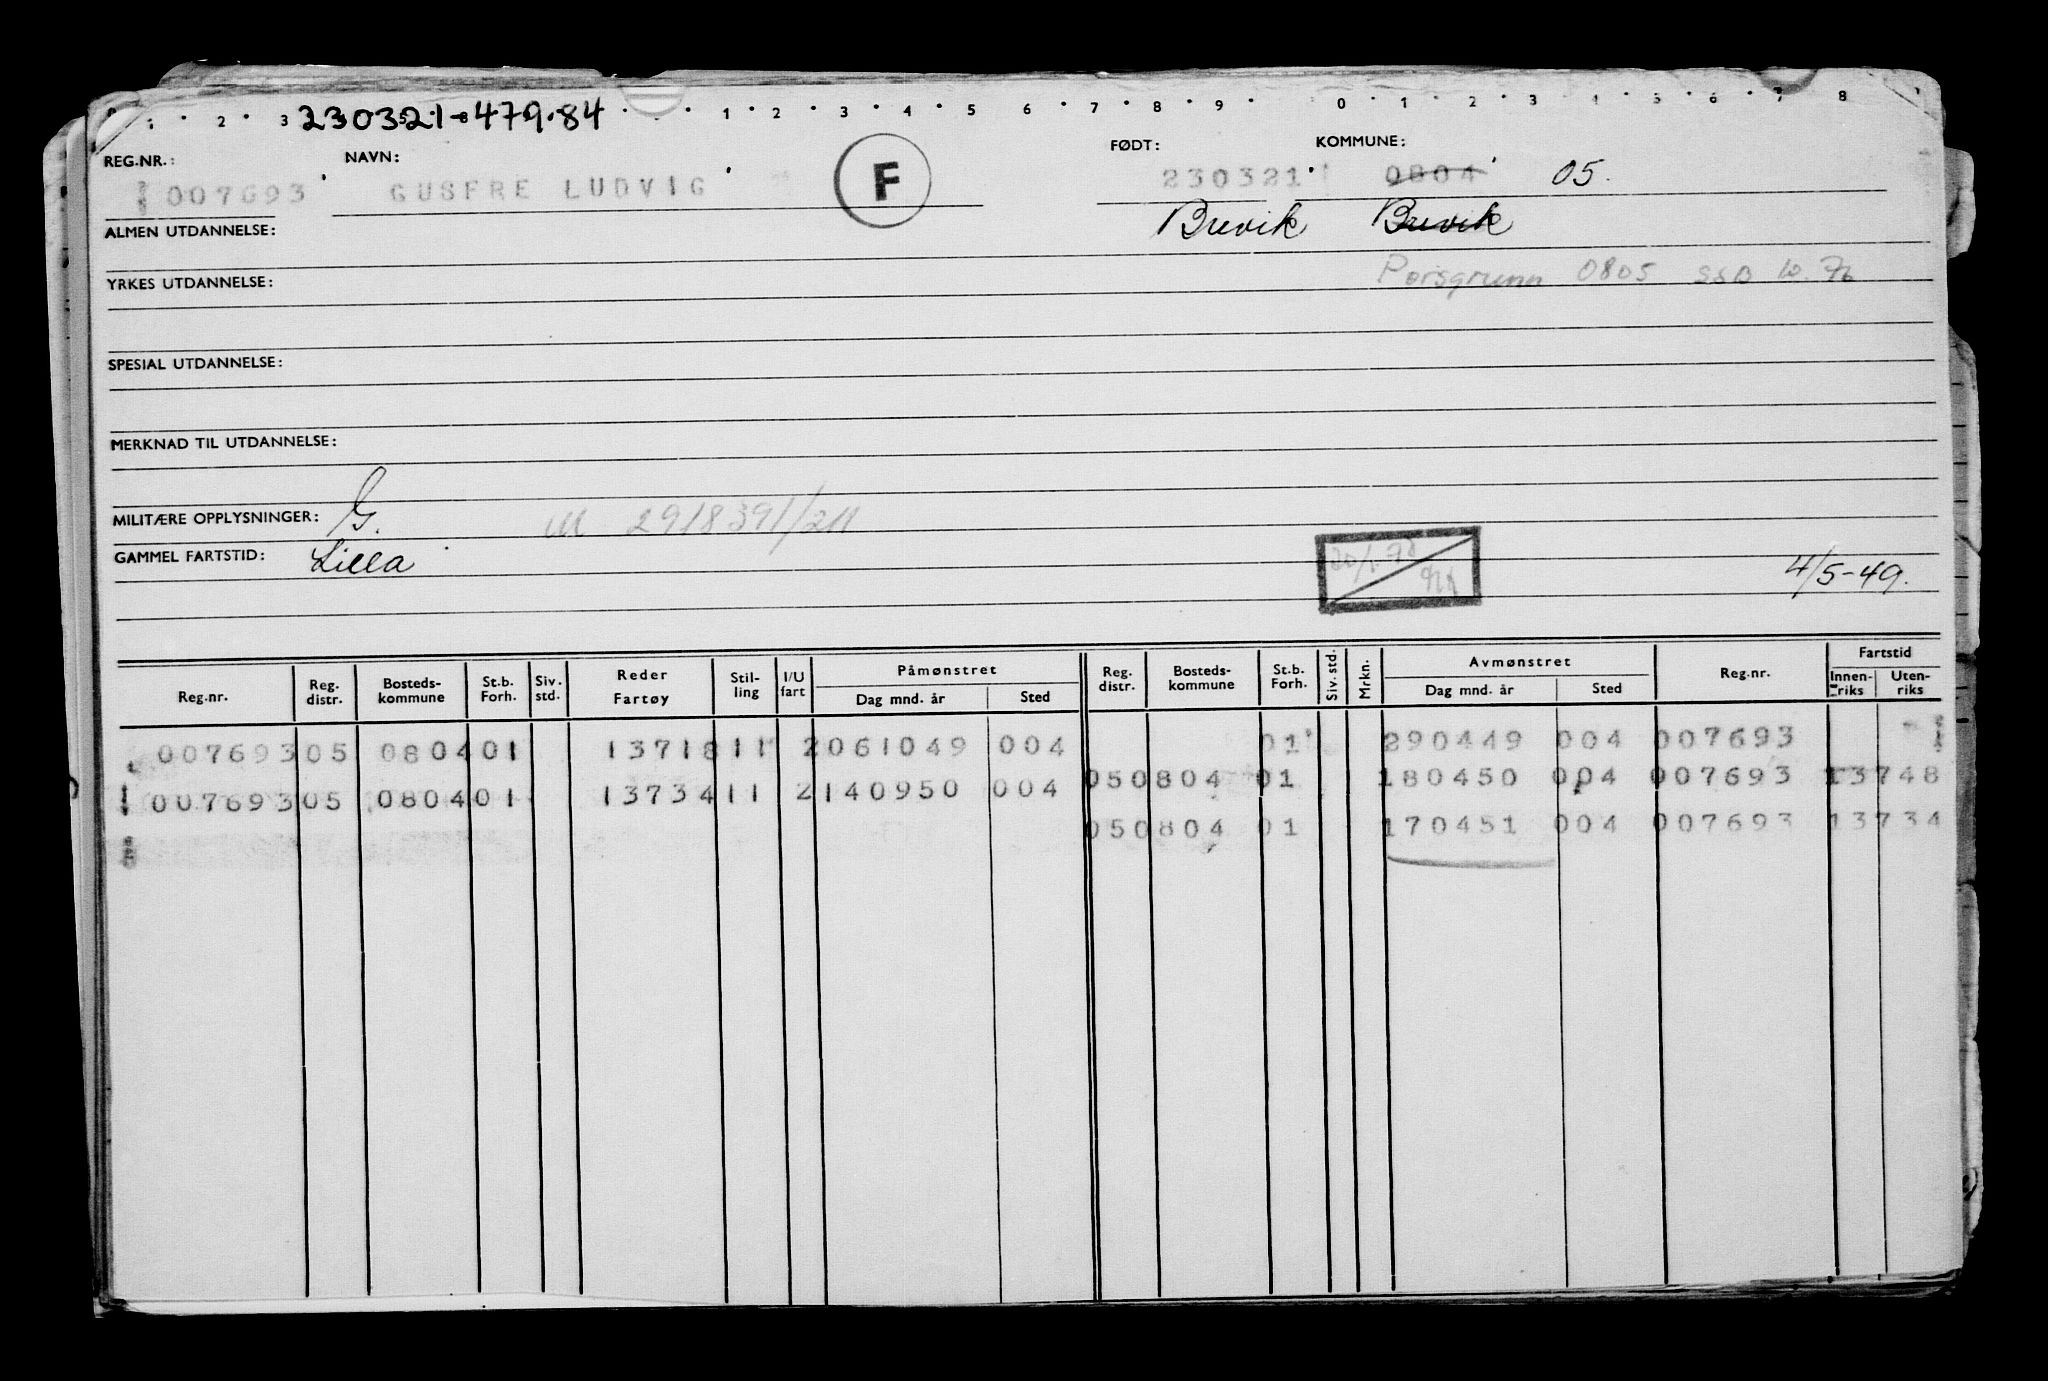 1 2 3 230321-479.84 1 2 3 4 5 6 7 8 9 0 1 2 3 4 5 6 7 8
REG.NR.: NAVN: FØDT: KOMMUNE:
007693 GUSFRE LUDVIG F 230321 0804 05.
ALMEN UTDANNELSE: Brevik Brevik
YRKES UTDANNELSE: Porsgrunn 0805 SSB 10.76
SPESIAL UTDANNELSE:
MERKNAD TIL UTDANNELSE:
MILITÆRE OPPLYSNINGER: G. M 2918391/211
GAMMEL FARTSTID: Lilla 4/5-49.
Reg.nr. Reg. distr. Bosteds- kommune St.b. Forh. Siv. std. Reder Fartøy Stil- ling I/U fart Påmønstret Dag mnd. år Sted Reg. distr. Bosteds- kommune St.b. Forh. Siv. std. Mrkn. Avmønstret Dag mnd. år Sted Reg.nr. Fartstid Innen- riks Uten- riks
007693 05 0804 01 13718 11 2 061049 004 01 290449 004 007693
050804 01 180450 004 007693 13748
007693 05 0804 01 13734 11 2 140950 004
050804 01 170451 004 007693 13734